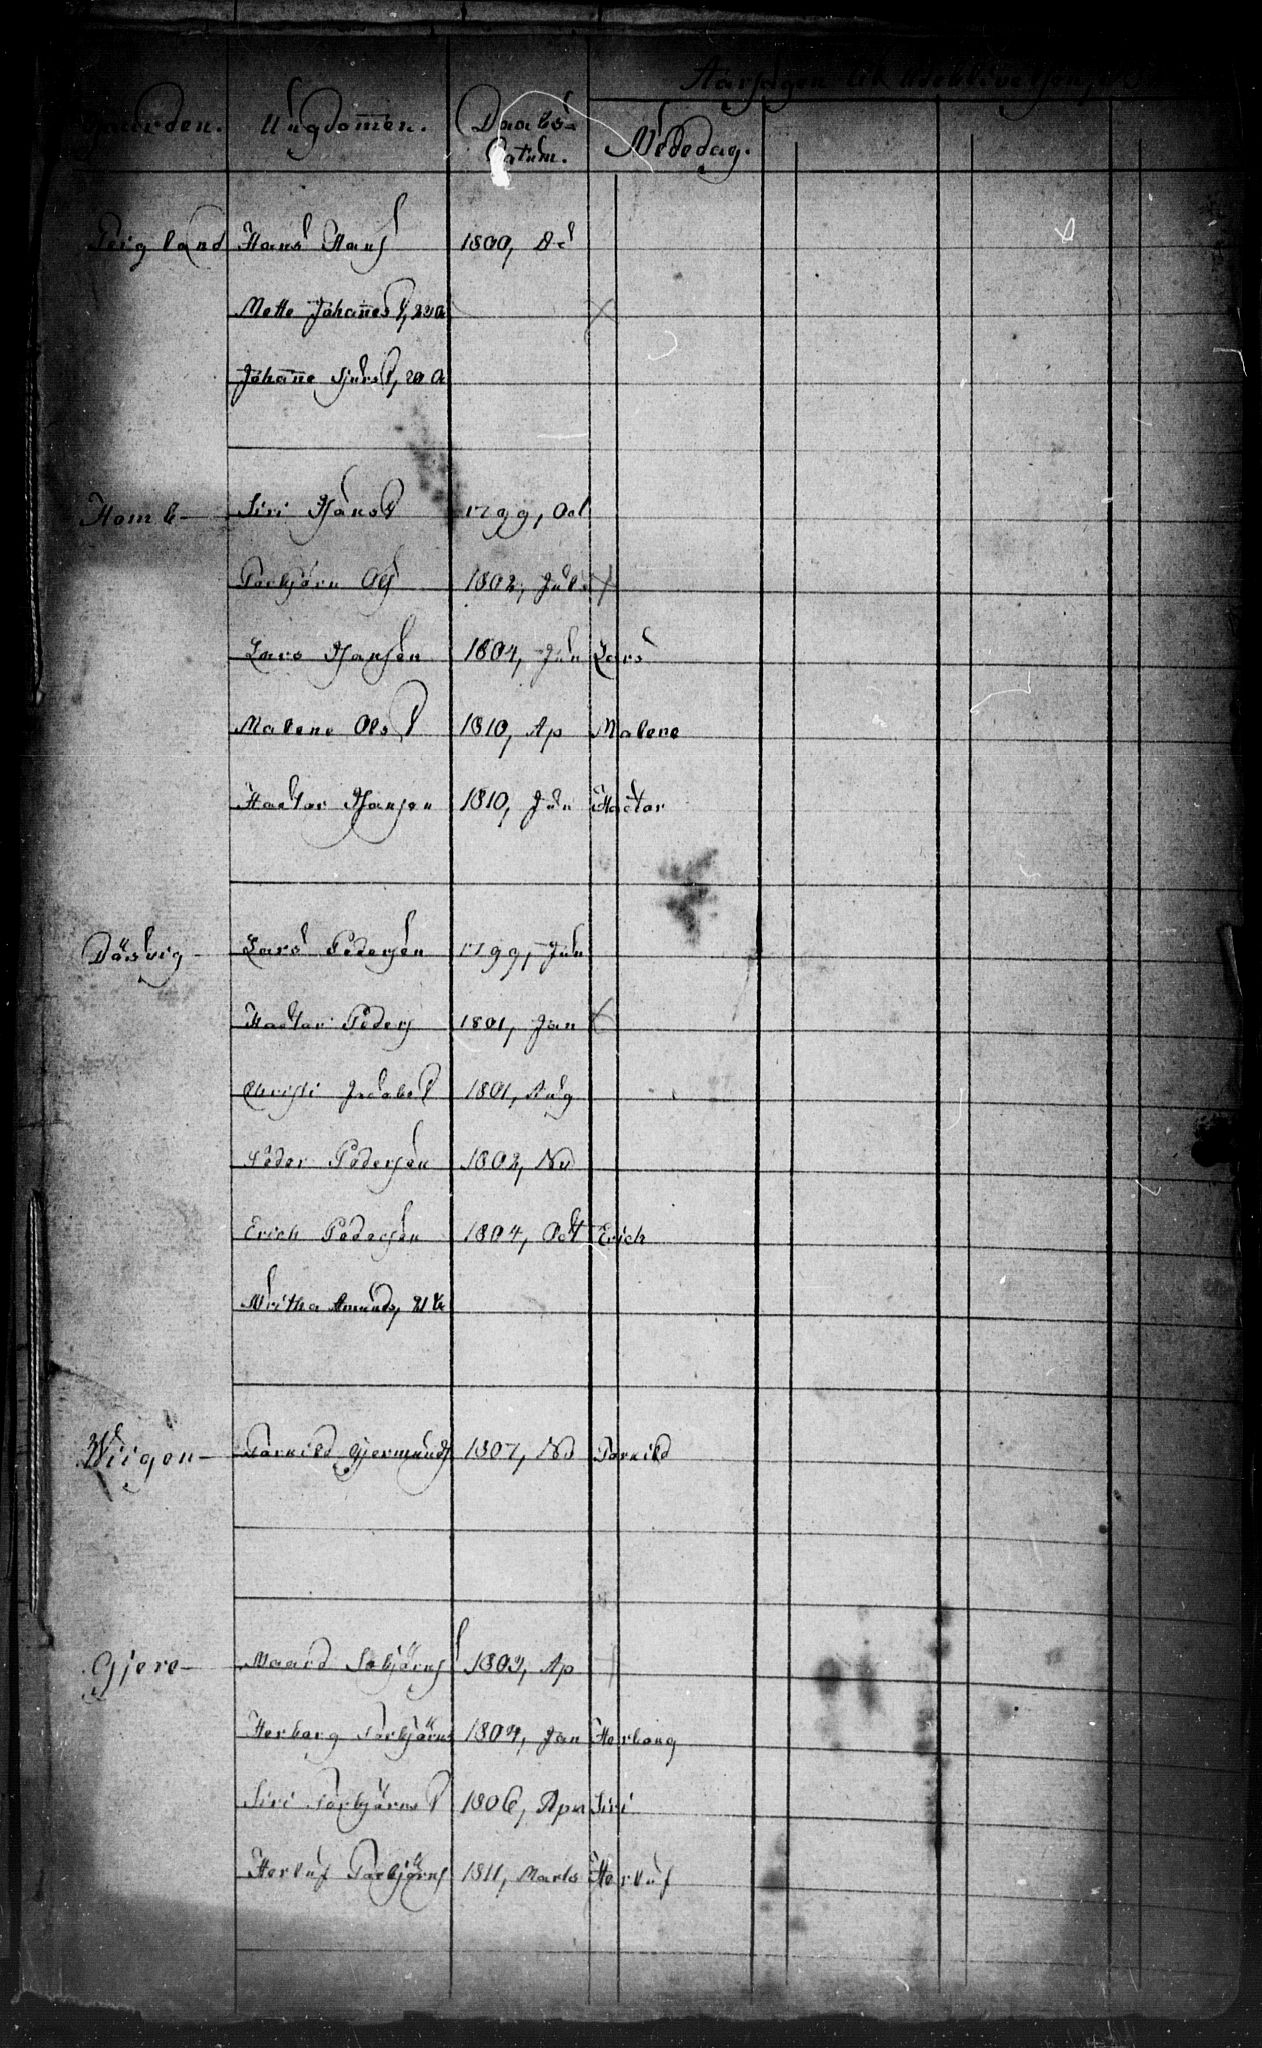 Aarsagen til Udeblivelsen,
Gaarden. Ungdommen. Daabs-
Datum. Mødedag.
Teigland Hans Hans 1800,
Mette Johannes 22 A
Johanne Sjurs 20 A
Homb- Siri Hans 1799, Oct
Torbjörn Ols 1802, Jul
Lars Hansen 1804, Jun Lars
Malene Ols 1810, Ap Malene
Hactor Hansen 1810, Jun Hactor
Däsvig- Lars Pedersen 1799, Jun
Hactor Peders 1801, Jan
Christi Jacobs 1801, Aug
Peder Pedersen 1802, No
Erich Pedersen 1804, Oct Erich
Mritha Amunds, 21 A
Wiigen- Tornild Gjermunds 1807, No Tornild
Gjere- Maard Tobjörns 1802, Ap
Herborg Torbjörns 1804, Jan Herborg
Siri Torbjörns 1806, Apr Siri
Herluf Torbjörns 1811, Marts Herluf